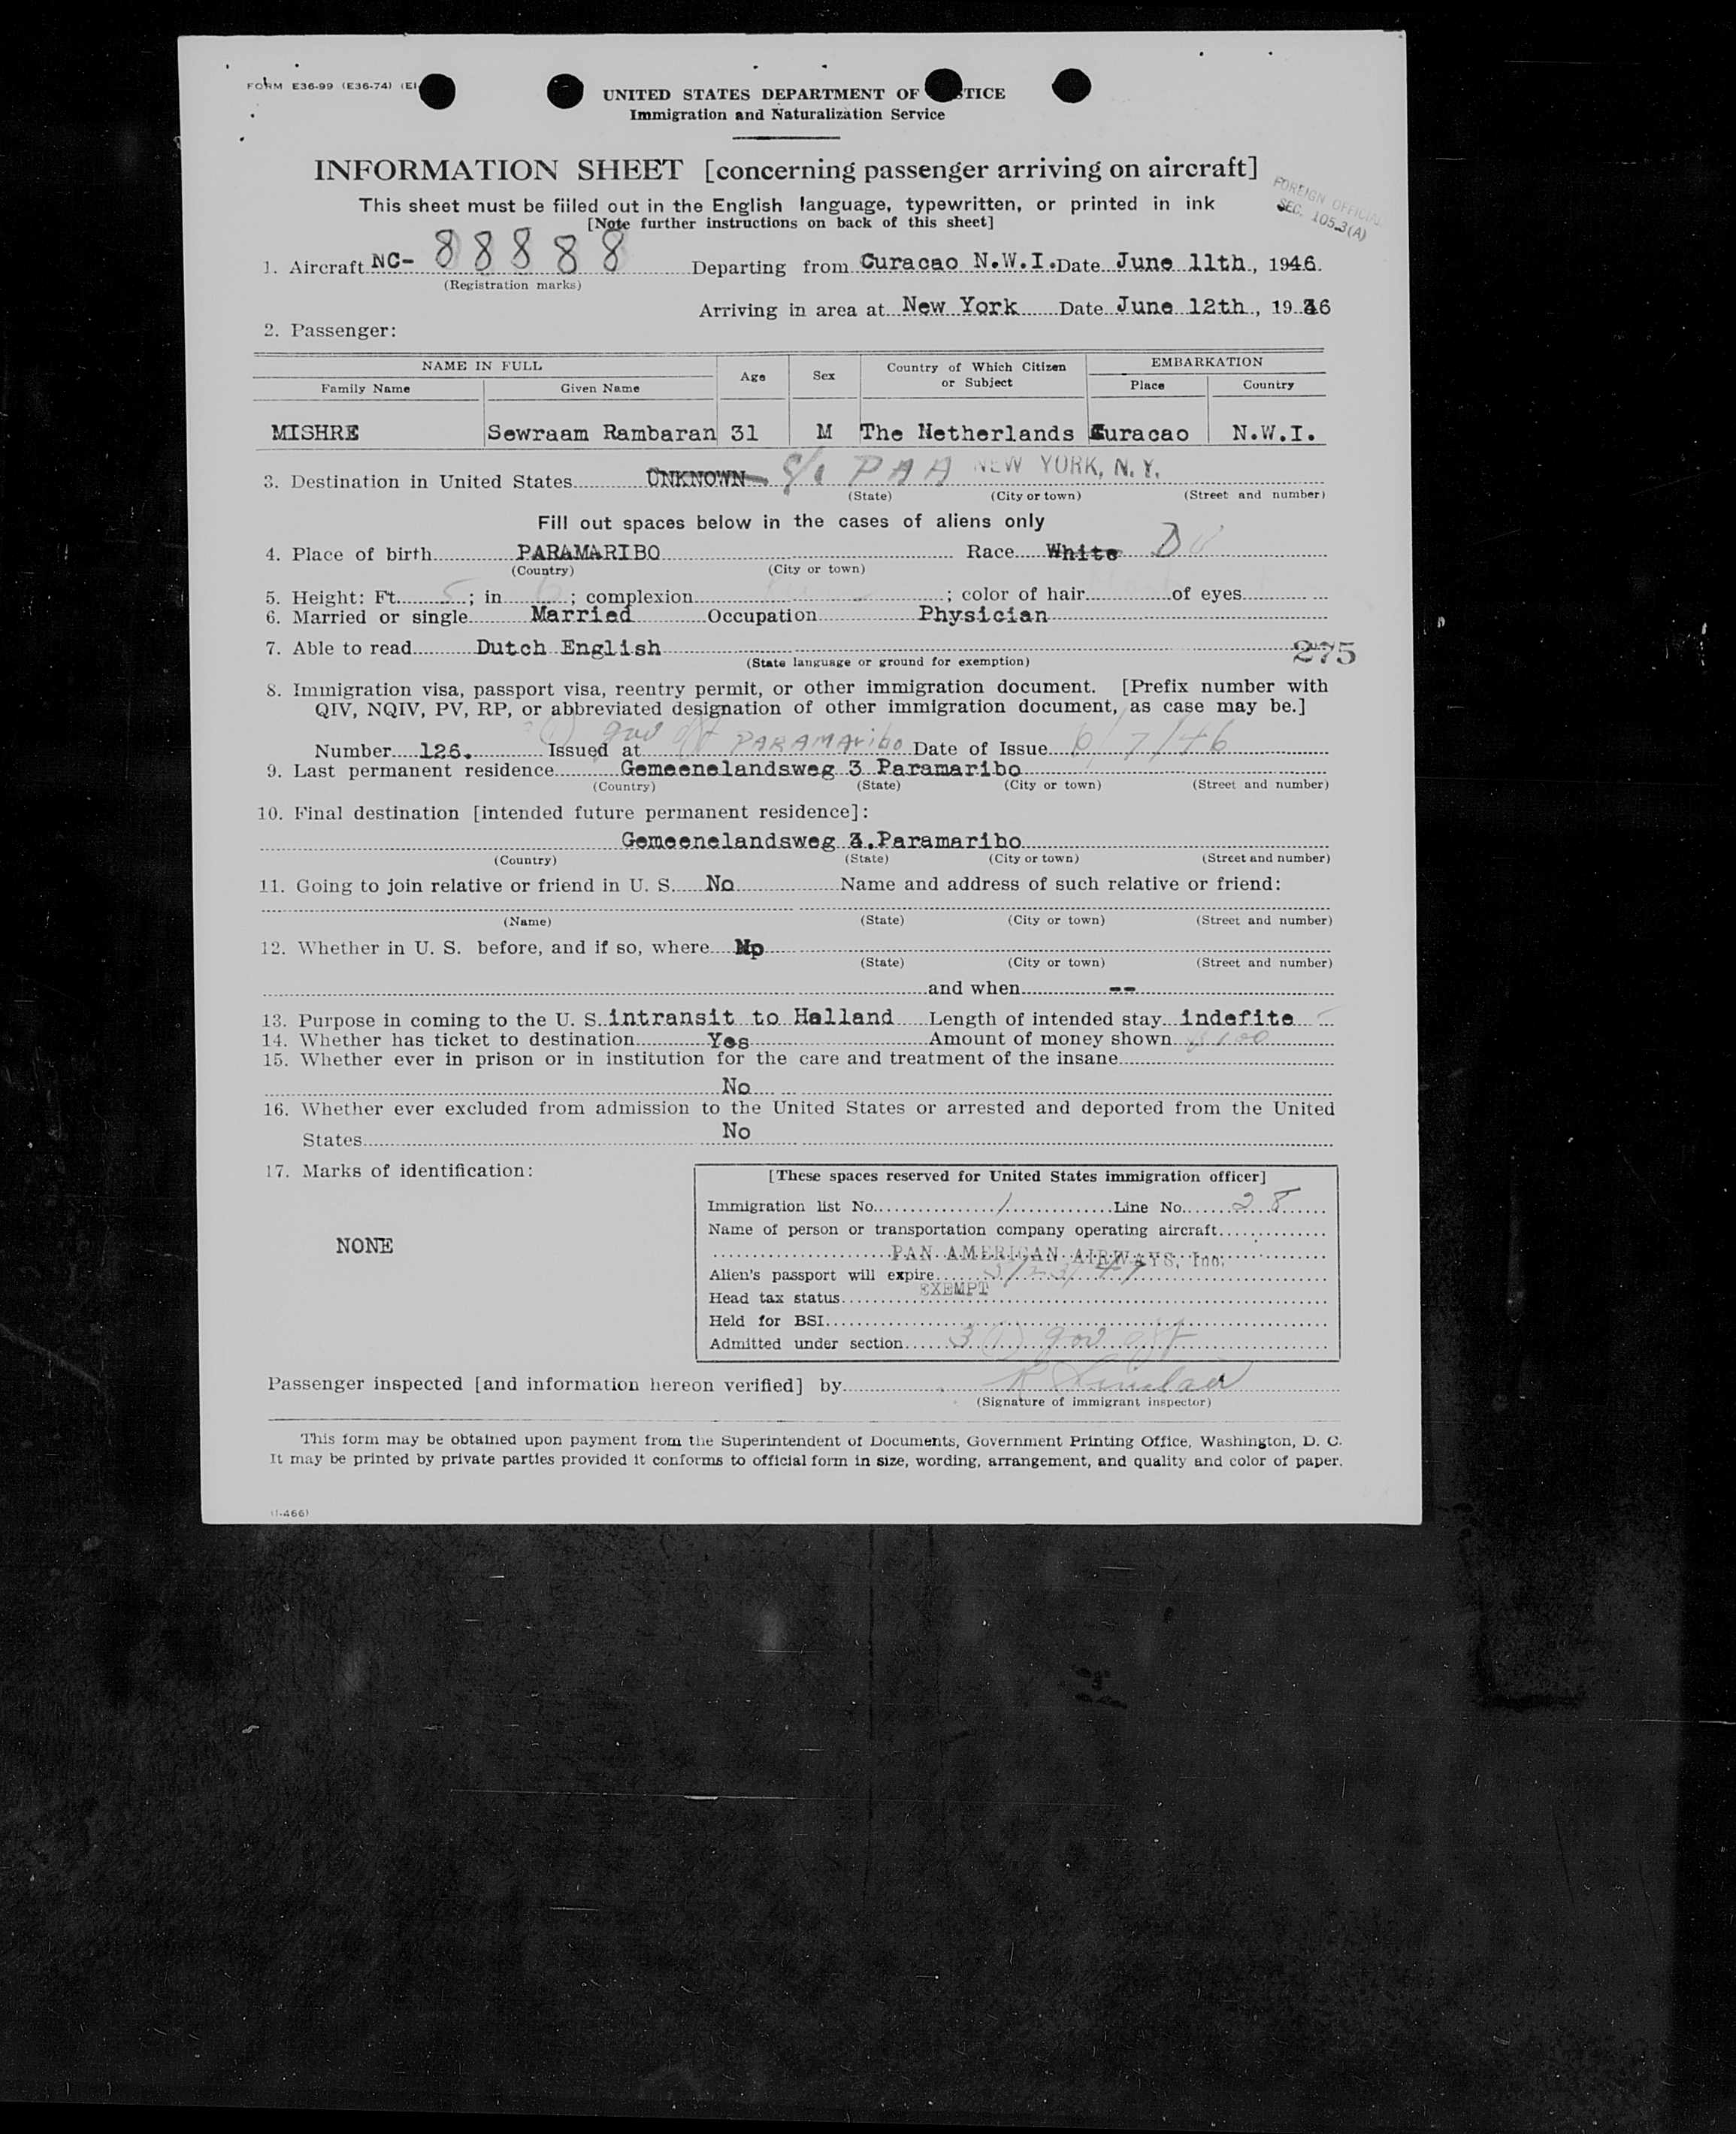 FORM E36-99 (E36-74) (EI
UNITED STATES DEPARTMENT OF TICE
Immigration and Naturalization Service
INFORMATION SHEET [concerning passenger arriving on aircraft]
FOREIGN OFFICIAL
SEC. 105.3(A)
This sheet must be filled out in the English language, typewritten, or printed in ink
[Note further instructions on back of this sheet]
1. Aircraft NC- 88888 Departing from Curacao N.W.I. Date June 11th, 1946.
(Registration marks)
Arriving in area at New York Date June 12th, 1946
2. Passenger:
NAME IN FULL Age Sex Country of Which Citizen or Subject EMBARKATION
Family Name Given Name Place Country
MISHRE Sewraam Rambaran 31 M The Netherlands Curacao N.W.I.
3. Destination in United States UNKNOWN c/o PAA NEW YORK, N. Y.
(State) (City or town) (Street and number)
Fill out spaces below in the cases of aliens only
4. Place of birth PARAMARIBO Race White DU
(Country) (City or town)
5. Height: Ft. 5; in 6; complexion ; color of hair of eyes
6. Married or single Married Occupation Physician
7. Able to read Dutch English 275
(State language or ground for exemption)
8. Immigration visa, passport visa, reentry permit, or other immigration document. [Prefix number with
QIV, NQIV, PV, RP, or abbreviated designation of other immigration document, as case may be.]
3(1) gov off
Number 126. Issued at PARAMARIBO Date of Issue 6/7/46
9. Last permanent residence Gemeenelandsweg 3 Paramaribo
(Country) (State) (City or town) (Street and number)
10. Final destination [intended future permanent residence]:
Gemeenelandsweg 3.Paramaribo
(Country) (State) (City or town) (Street and number)
11. Going to join relative or friend in U. S. No Name and address of such relative or friend:
(Name) (State) (City or town) (Street and number)
12. Whether in U. S. before, and if so, where No
(State) (City or town) (Street and number)
and when --
13. Purpose in coming to the U. S. intransit to Halland Length of intended stay indefite
14. Whether has ticket to destination Yes Amount of money shown $100
15. Whether ever in prison or in institution for the care and treatment of the insane
No
16. Whether ever excluded from admission to the United States or arrested and deported from the United
States No
17. Marks of identification:
NONE
[These spaces reserved for United States immigration officer]
Immigration list No. 1 Line No. 28
Name of person or transportation company operating aircraft
PAN AMERICAN AIRWAYS, Inc.
Alien's passport will expire 3/23/47
Head tax status EXEMPT
Held for BSI
Admitted under section 3(1) gov off
Passenger inspected [and information hereon verified] by R Sinclair
(Signature of immigrant inspector)
This form may be obtained upon payment from the Superintendent of Documents, Government Printing Office, Washington, D. C.
It may be printed by private parties provided it conforms to official form in size, wording, arrangement, and quality and color of paper.
(I-466)